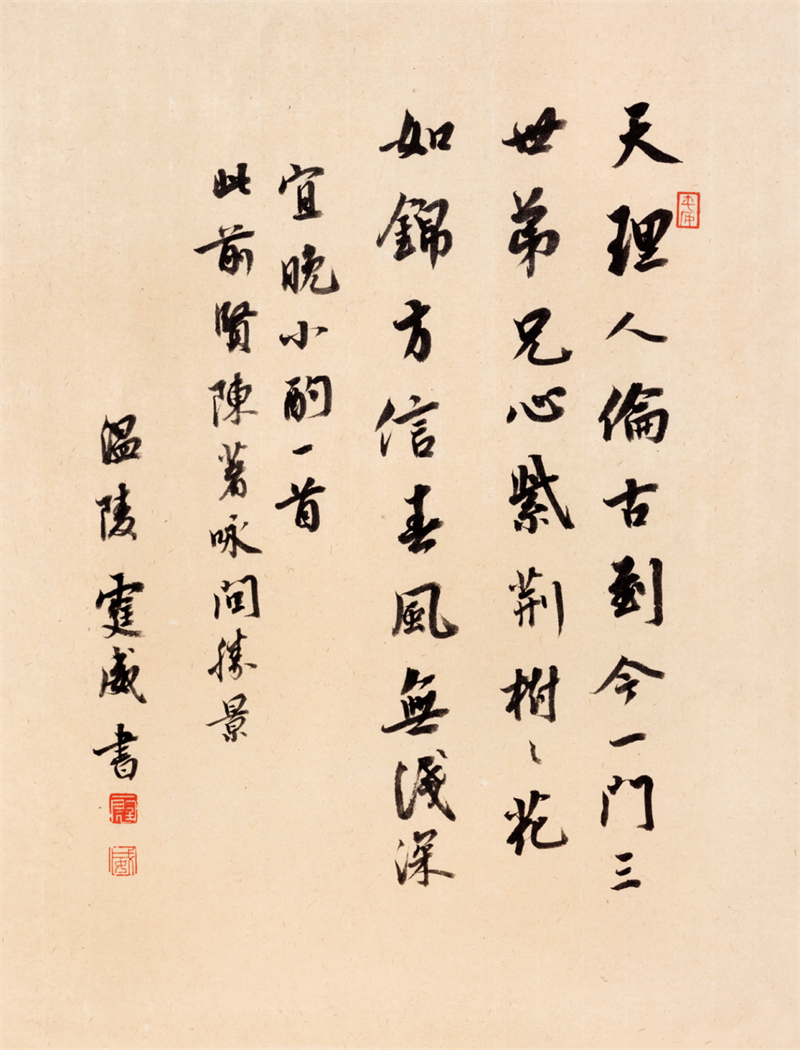 天理人倫古到今一門三
世弟兄心紫荆樹々花
如錦方信春風無淺深
宜晚小酌一首
此前賢陳著咏問勝景
温陵霆威書
霆
威